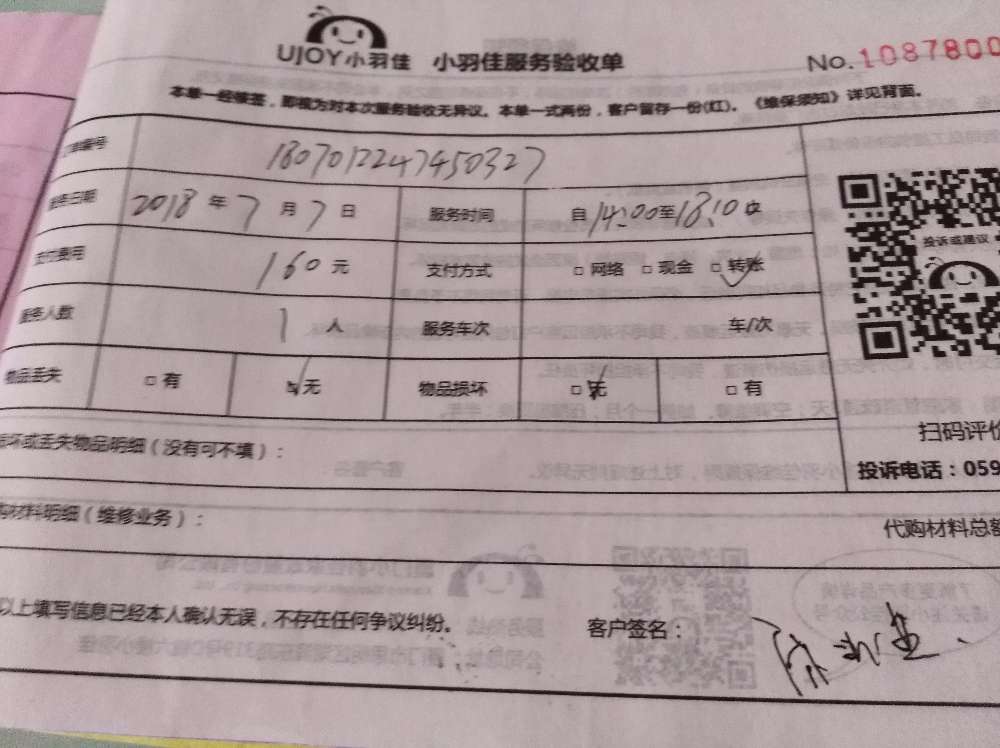 UJOY小羽佳 小羽佳服务验收单 No.1087800
本单一经领签，即视为对本次服务验收无异议。本单一式两份，客户留存一份(红)。《维保须知》详见背面。
订单编号 180701224745032７
服务日期 2018 年 7 月 7 日 服务时间 自 14:00 至 18:10
支付费用 160 元 支付方式 □ 网络 □ 现金 □ 转账
服务人数 1 人 服务车次 车/次
物品丢失 □ 有 □ 无 物品损坏 □ 无 □ 有
投诉或建议
扫码评价
损坏或丢失物品明细（没有可不填）：
投诉电话：059
购材料明细（维修业务）：
代购材料总额
以上填写信息已经本人确认无误，不存在任何争议纠纷。 客户签名：